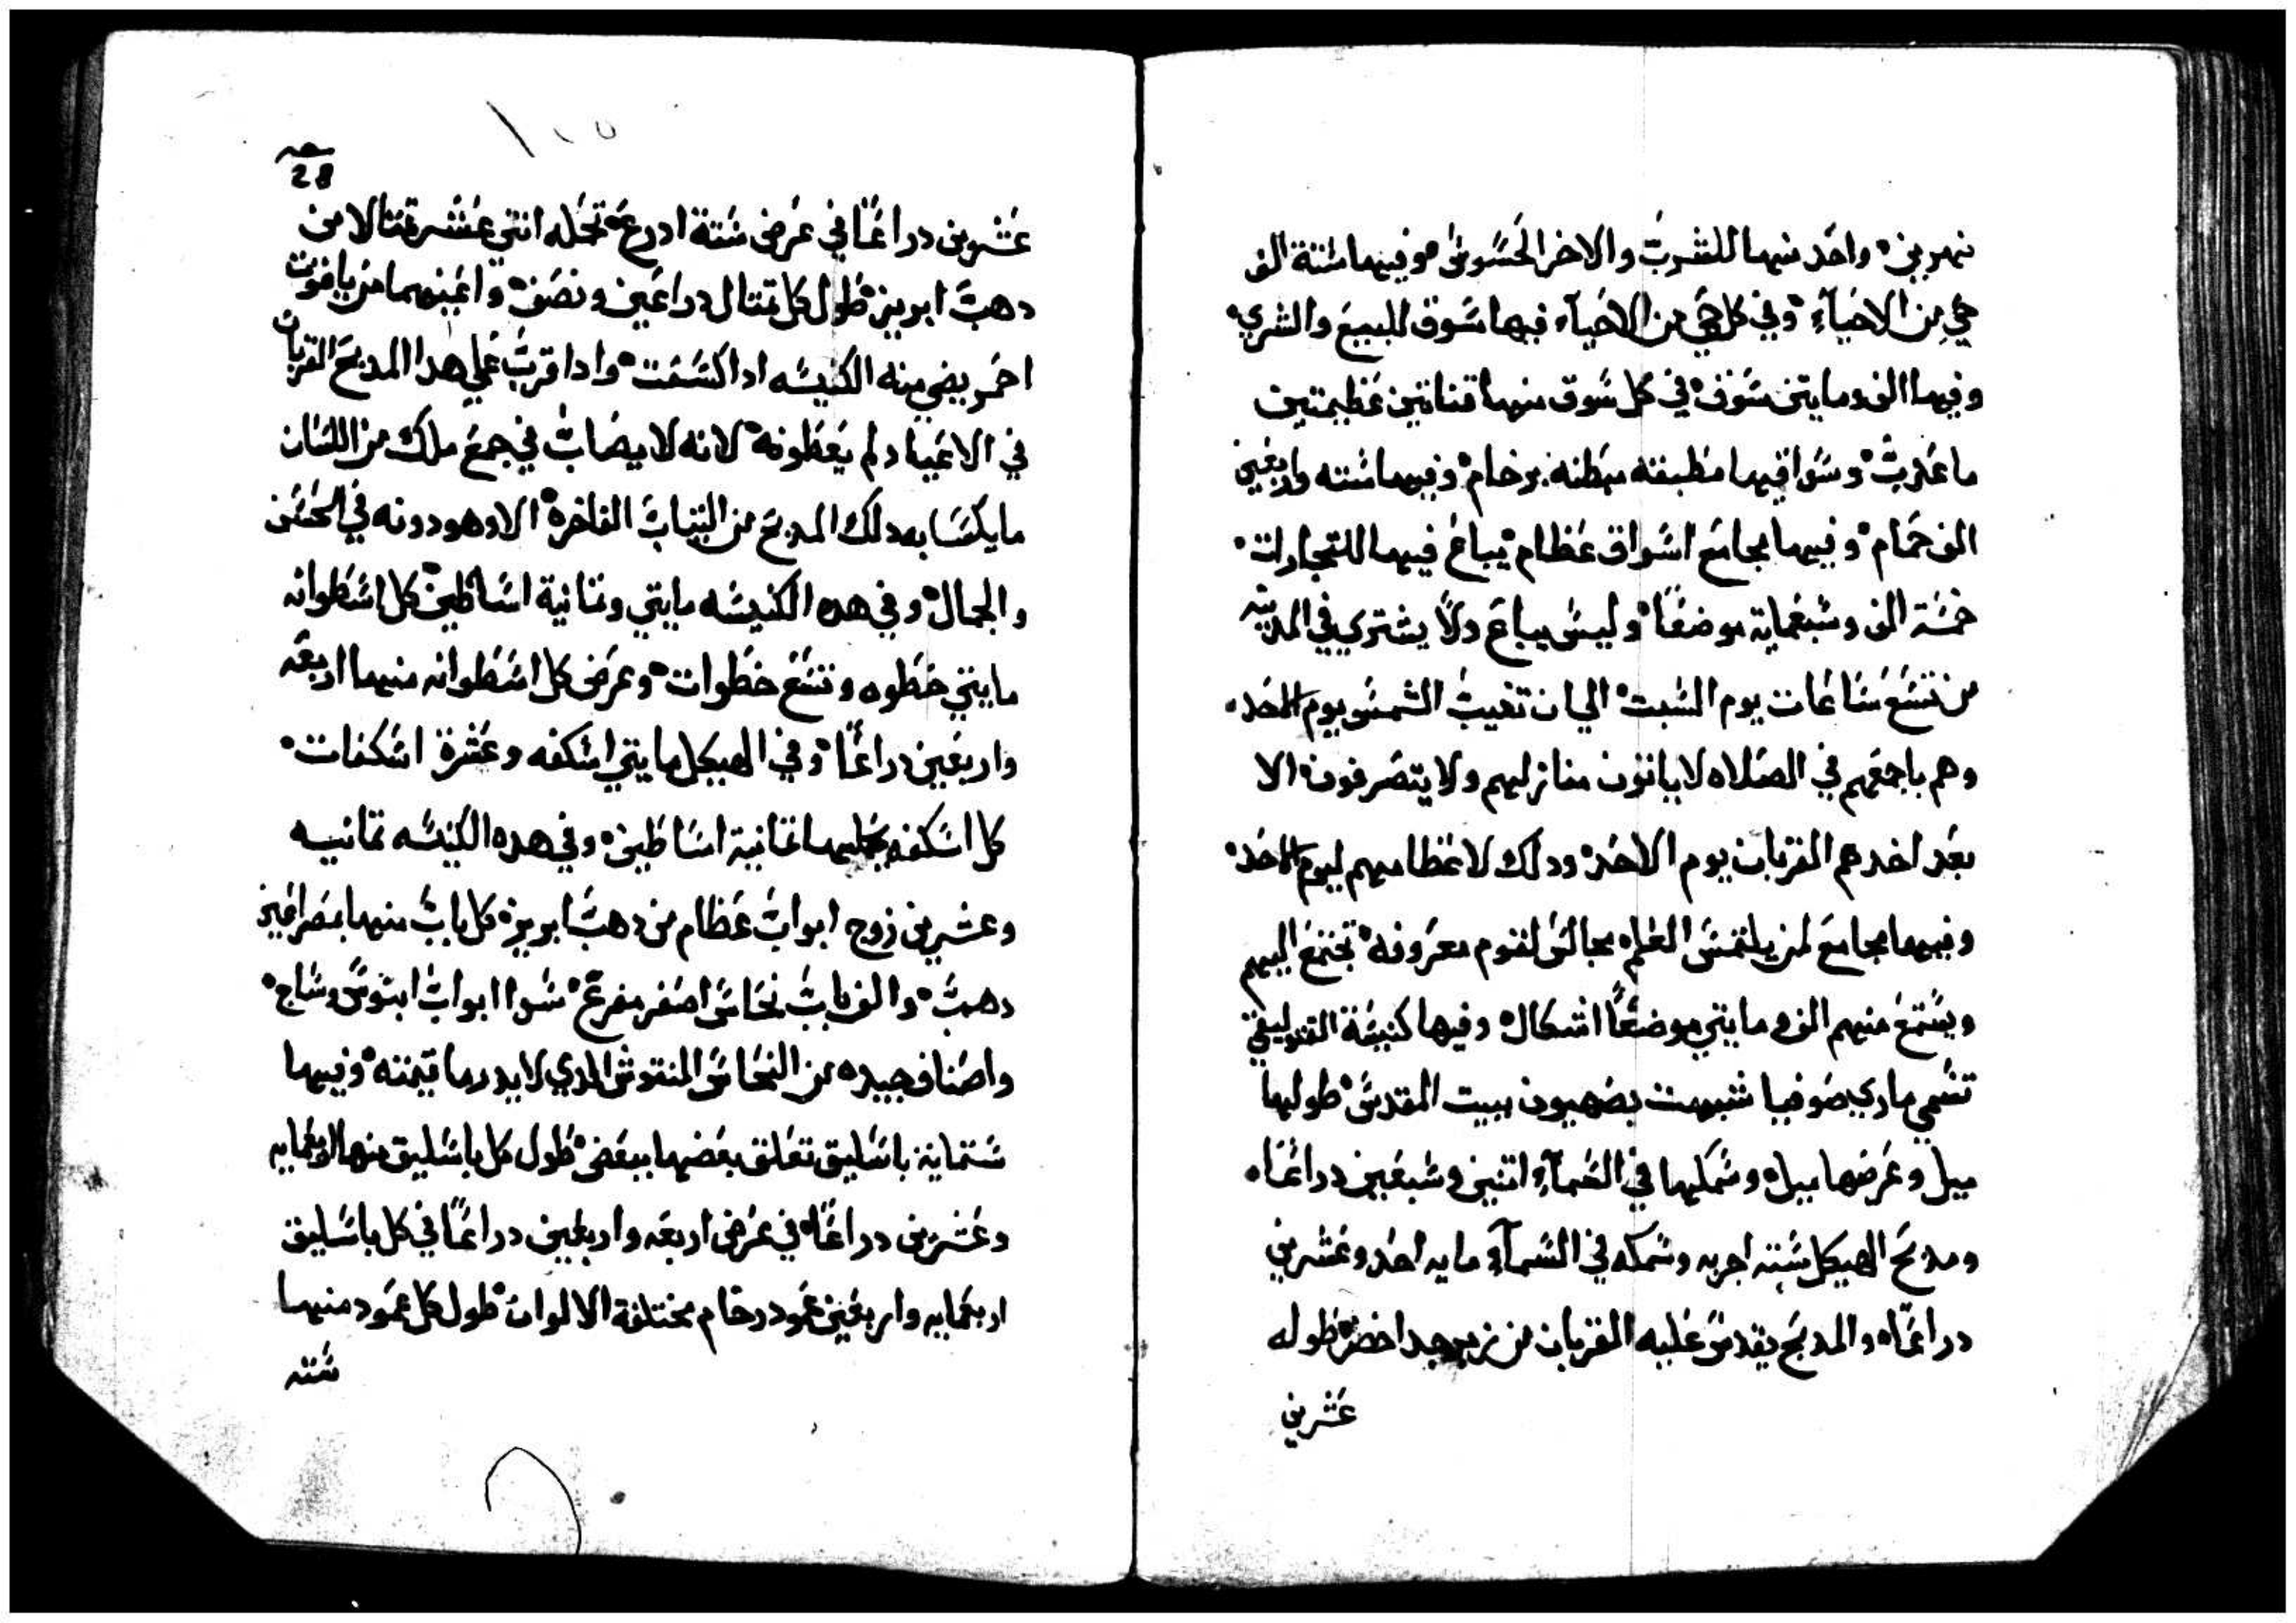 نهرين واحد منها للشرب والاخر الحسوش وفيها ستة الف
حي من الاحياء وفي كل حي من الاحياء فيها سوق للبيع والشري
وفيها الف ومايتين سوق في كل سوق منها قناتين عظيمتين
ما عذب وسواقيها مطبقه مبطنه برخام وفيها سته واربعين
الف حمام وفيها مجامع اسواق عظام يباع فيها للتجارات
خمسة الف وسبعمايه موضعا وليس يباع ولا يشتري في المدينه
من تسع ساعات يوم السبت الي ان تغيب الشمس يوم الاحد
وهم باجمعهم في الصلاه لا ياتون منازلهم ولا يتصرفون الا
بعد اخدهم القربان يوم الاحد ودلك لاعظامهم ليوم الاحد
وفيها مجامع لمن يلتمس العلم مجالس لقوم معروفه تجتمع اليهم
ويستمع منهم الف ومايتي موضعا اشكال وفيها كنيسة القتوليقي
تسمي ماري صوفيا شبهت بصهيون ببيت المقدس طولها
ميل وعرضها ميل وسمكها في السمآء اتنين وسبعين دراعا
ومدبح الهيكل سته اجربه وسمكه في السمآء مايه احد وعشرين
دراعا والمدبح يقدس عليه القربان من زبرجد اخضر طوله
عشرين
28
عشرين دراعا في عرض ستة ادرع تحمله اتني عشر تمتالا من
دهب ابريز طول كل تمتال دراعين ونصف واعينهما من ياقوت
احمر يضي منه الكنيسه ادا كسفت وادا قرب علي هدا المدبح القربان
في الاعياد لم يعطونه لانه لا يصاب في جمع ملك من اللسان
ما يكسا به دلك المدبح من التياب الفاخرة الا وهو دونه في الحسن
والجمال وفي هده الكنيسه مايتي وتمانية اساطين كل اسطوانه
مايتي خطوه وتسع خطوات وعرض كل اسطوانه منها اربعه
واربعين دراعا وفي الهيكل مايتي اسكفه وعشرة اسكفات
كل اسكفه عليها تمانية اساطين وفي هده الكنيسه تمانيه
وعشرين زوج ابواب عظام من دهب ابريز كل باب منها بمصراعين
دهب والف باب نحاس اصفر مفرع سوا ابواب ابنوس وساج
واصناف جيده من النحاس المنقوش الدي لا يدرما قيمته وفيها
ستماية باسليق تعلق بعضها ببعض طول كل باسليق منها اربعمايه
وعشرين دراعا في عرض اربعه واربعين دراعا في كل باسليق
اربعمايه واربعين عمود رخام مختلفة الالوان طول كل عمود منها
سته